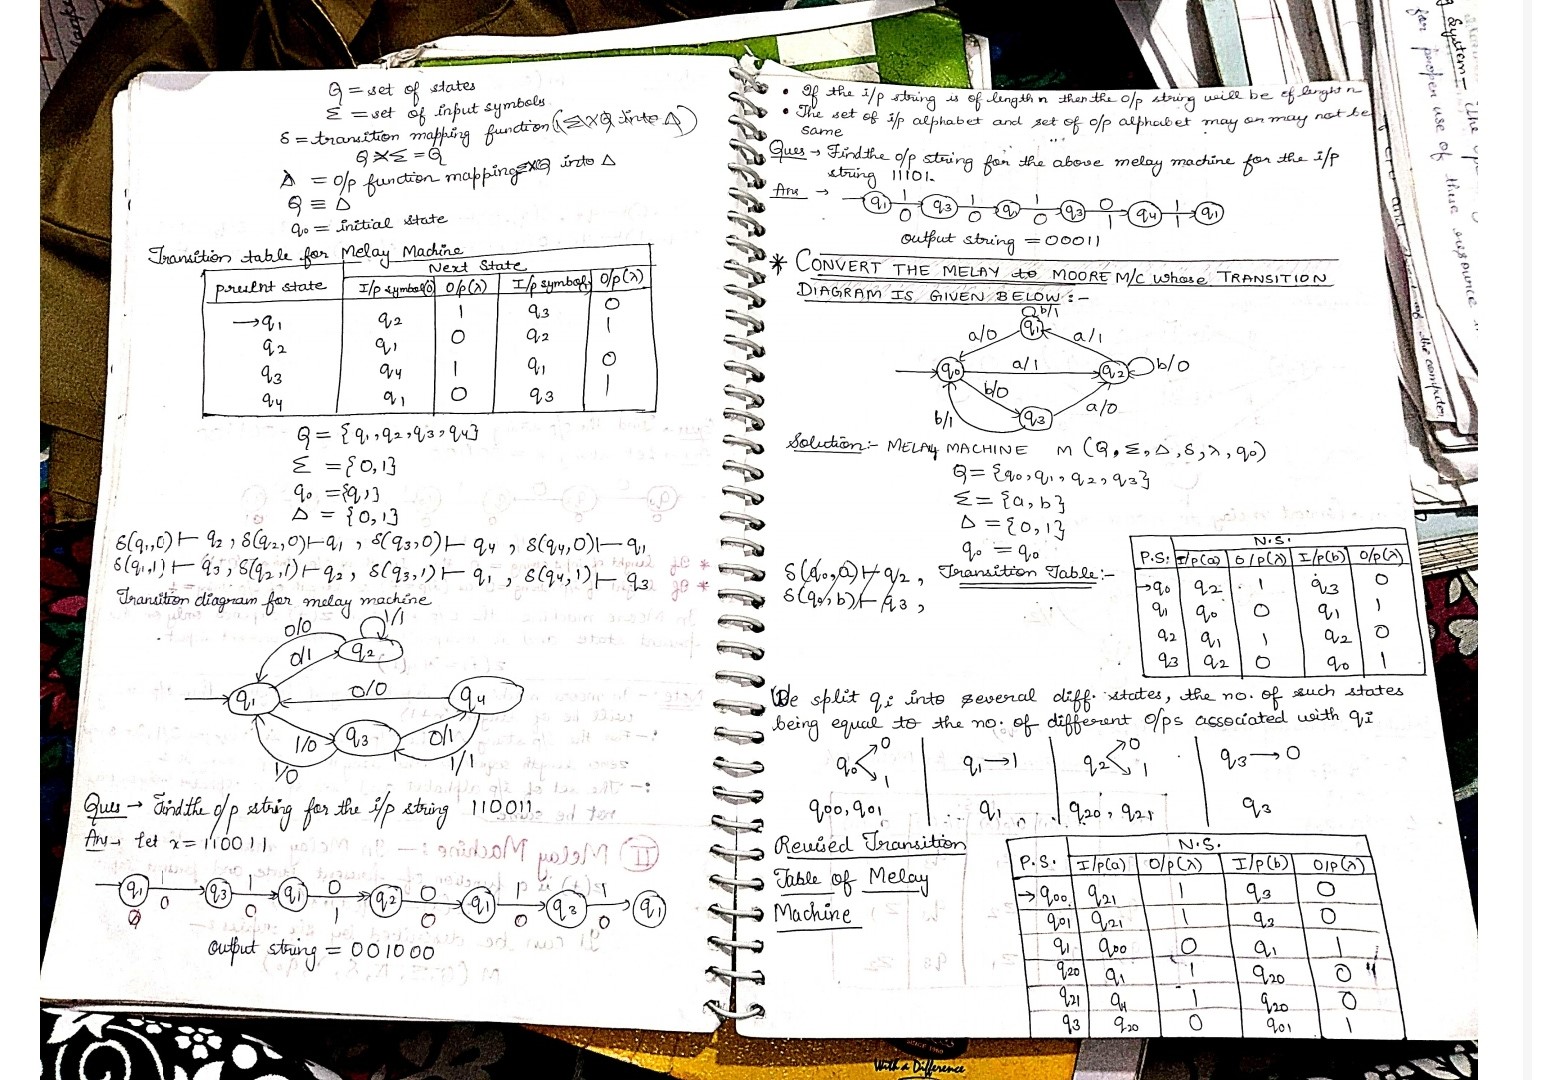 Q = set of states
Σ = set of input symbols
δ = transition mapping function (Σ×Q into Δ)
Q×Σ = Q
Δ = o/p function mapping Σ×Q into Δ
Q ≡ Δ
q₀ = initial state
Transition table for Melay Machine
Next State
present state I/p symbol(0) O/p(λ) I/p symbol O/p(λ)
→q₁ q₂ 1 q₃ 0
q₂ q₁ 0 q₂ 1
q₃ q₄ 1 q₁ 0
q₄ q₁ 0 q₃ 1
Q = {q₁,q₂,q₃,q₄}
Σ = {0,1}
q₀ = {q₁}
Δ = {0,1}
δ(q₁,0)⊢ q₂, δ(q₂,0)⊢q₁, δ(q₃,0)⊢ q₄, δ(q₄,0)⊢ q₁
δ(q₁,1)⊢ q₃, δ(q₂,1)⊢ q₂, δ(q₃,1)⊢ q₁, δ(q₄,1)⊢ q₃
Transition diagram for melay machine
0/0 1/1
0/1 q₂
q₁ 0/0 q₄
1/0 q₃ 0/1
1/0 1/1
Ques → Find the o/p string for the i/p string 110011.
Ans → let x = 110011
q₁ 1 q₃ 1 q₁ 0 q₂ 0 q₁ 1 q₃ 1 q₁
0 0 1 0 0 0
output string = 001000
• If the i/p string is of length n then the o/p string will be of lenght n
• The set of i/p alphabet and set of o/p alphabet may or may not be
same
Ques → Find the o/p string for the above melay machine for the i/p
string 11101.
Ans →
q₁ 1 q₃ 1 q₁ 1 q₃ 0 q₄ 1 q₁
0 0 0 1 1
output string = 00011
* CONVERT THE MELAY to MOORE M/C whose TRANSITION
DIAGRAM IS GIVEN BELOW :-
b/1
a/0 q₁ a/1
q₀ a/1 q₂ b/0
b/0
b/1 q₃ a/0
Solution:- MELAY MACHINE M (Q, Σ, Δ, δ, λ, q₀)
Q = {q₀, q₁, q₂, q₃}
Σ = {a, b}
Δ = {0,1}
q₀ = q₀
δ(q₀,a)⊢q₂,
δ(q₀,b)⊢q₃,
Transition Table:-
N.S.
P.S. I/p(a) O/p(λ) I/p(b) O/p(λ)
→q₀ q₂ 1 q₃ 0
q₁ q₀ 0 q₁ 1
q₂ q₁ 1 q₂ 0
q₃ q₂ 0 q₀ 1
We split qi into several diff. states, the no. of such states
being equal to the no. of different O/ps associated with qi
q₀ 0 1 q₁→1 q₂ 0 1 q₃→0
q₀₀, q₀₁ q₁ q₂₀, q₂₁ q₃
Revised Transition
Table of Melay
Machine
N.S.
P.S. I/P(a) O/P(λ) I/P(b) O/P(λ)
→q₀₀ q₂₁ 1 q₃ 0
q₀₁ q₂₁ 1 q₃ 0
q₁ q₀₀ 0 q₁ 1
q₂₀ q₁ 1 q₂₀ 0
q₂₁ q₁ 1 q₂₀ 0
q₃ q₂₀ 0 q₀₁ 1
With a Difference
for proper use of these resource
System-
of the computer